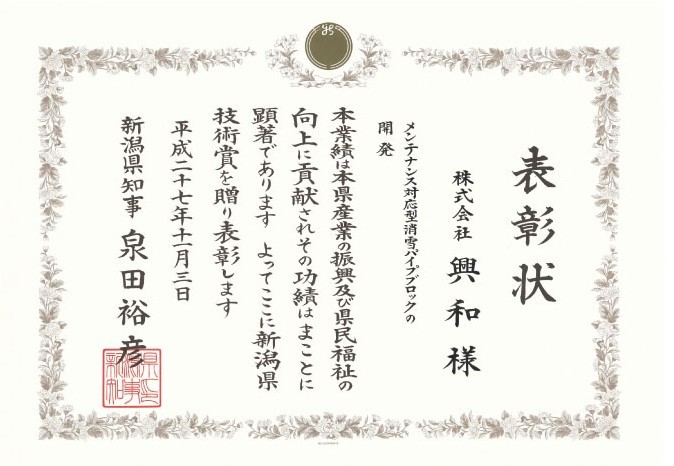 表彰状
株式会社 興和 様
メンテナンス対応型消雪パイプブロックの
開発
本業績は本県産業の振興及び県民福祉の
向上に貢献されその功績はまことに
顕著であります よってここに新潟県
技術賞を贈り表彰します
平成二十七年十一月三日
新潟県知事 泉田裕彦
新潟県知事之印